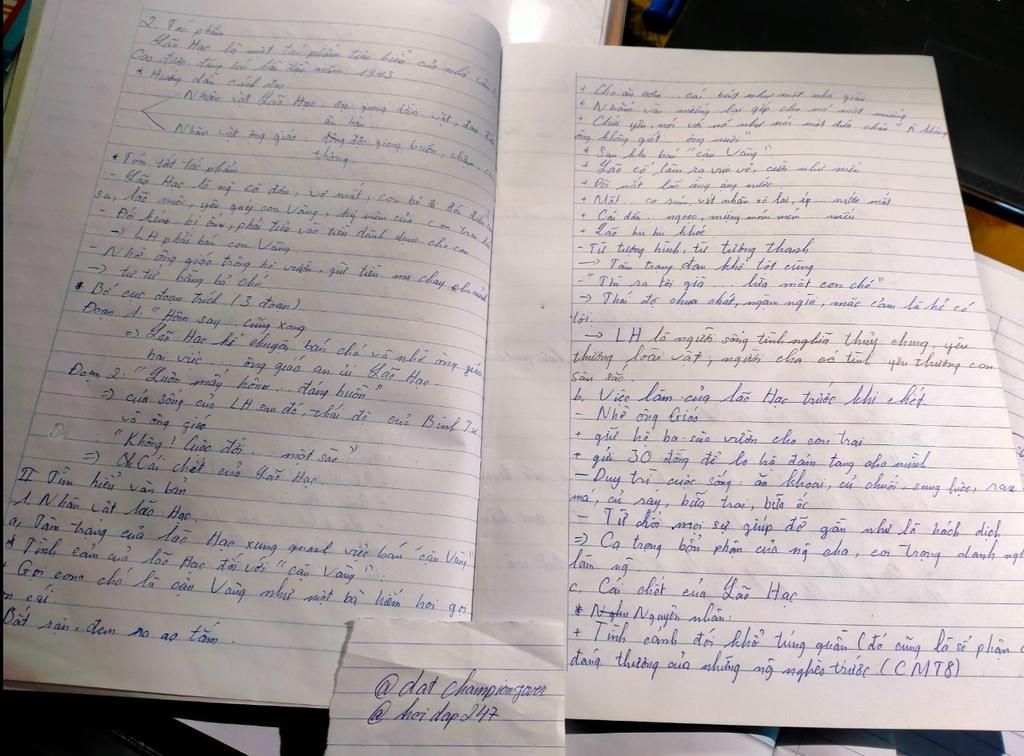 2. Tác phẩm
Lão Hạc là một tác phẩm tiêu biểu của nhà văn
Cao được đăng báo lần đầu năm 1943
* Hướng dẫn cách đọc
Nhân vật Lão Hạc: đọc giọng dằn vặt, đau
ăn năn
Nhân vật ông giáo: giọng buồn, chậm,
thông.
* Tóm tắt tác phẩm
- Lão Hạc là ng cô đơn, vợ mất, con bỏ đi đồn điền
su, lão nuôi, yêu quý con Vàng, kỷ niệm của con trai
- Đó kiếm bị ốm, phải tiêu vào tiền dành dụm cho con
-> LH phải bán con Vàng.
- Nhờ ông giáo trông hộ vườn, gửi tiền ma chay
-> tự tử bằng bả chó.
* Bố cục đoạn trích (3 đoạn)
Đoạn 1: "Hôm sau... cũng xong
=> Lão Hạc kể chuyện bán chó và nhờ ông giáo
hai việc... ông giáo an ủi Lão Hạc.
Đoạn 2: "Luôn mấy hôm... đáng buồn"
=> cuộc sống của LH sau đó, thái độ của Binh Tư
và ông giáo
"Không! Cuộc đời... một sào"
=> Cái chết của Lão Hạc.
II Tìm hiểu văn bản
1. Nhân vật lão Hạc.
a, Tâm trạng của lão Hạc xung quanh việc bán "cậu Vàng"
* Tình cảm của lão Hạc đối với "cậu Vàng":
+ Gọi con chó là cậu Vàng như một bà hiếm hoi gọi
con cái
Bắt rận, đem ra ao tắm.
+ Cho ăn cơm... cái bát như một nhà giàu
+ Nhắm vài miếng lại gắp cho nó một miếng
+ Chửi yêu, nói với nó như nói một đứa cháu "A không
ông không giết... ông nuôi"
* Sau khi bán "cậu Vàng"
+ Lão cố làm ra vui vẻ, cười như mếu
+ Đôi mắt lão ầng ậng nước.
+ Mặt... co rúm, vết nhăn xô lại, ép... nước mắt
+ Cái đầu... ngoẹo, miệng móm mém... mếu
+ Lão hu hu khóc
- Từ tượng hình, từ tượng thanh
-> Tâm trạng đau khổ tột cùng
- "Thì ra tôi già... lừa một con chó"
=> Thái độ chua chát, ngậm ngùi, mặc cảm là kẻ có
tội.
-> LH là người sống tình nghĩa thủy chung, yêu
thương loài vật, người cha có tình yêu thương con
sâu sắc
b. Việc làm của lão Hạc trước khi chết
- Nhờ ông Giáo
+ giữ hộ ba sào vườn cho con trai
+ gửi 30 đồng để lo hộ đám tang cho mình
- Duy trì cuộc sống: ăn khoai, củ chuối, sung luộc, rau
má, củ ráy, bữa trai, bữa ốc
- Từ chối mọi sự giúp đỡ gần như là hách dịch
=> Cả trọng bổn phận của ng cha, coi trọng danh
làm ng
c. Cái chết của Lão Hạc
* Nguyên nhân:
+ Tình cảnh đói khổ túng quẫn (đó cũng là số phận
đáng thương của những ng nghèo trước (CMT8)
@dat championzover
@hoidap247